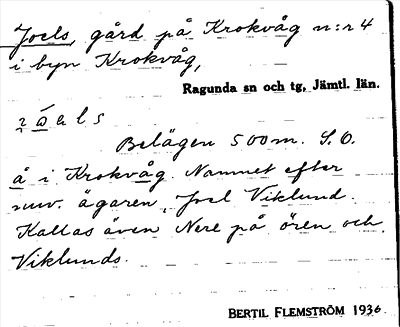 Joels, gård på Krokvåg n:r 4
i byn Krokvåg,
Ragunda sn och tg, Jämtl. län.
Belägen 500m. S.O.
å i Krokvåg. Namnet efter
nuv. ägaren, Joel Viklund.
Kallas även Nere på ören och
Viklunds.
BERTIL FLEMSTRÖM 1936.